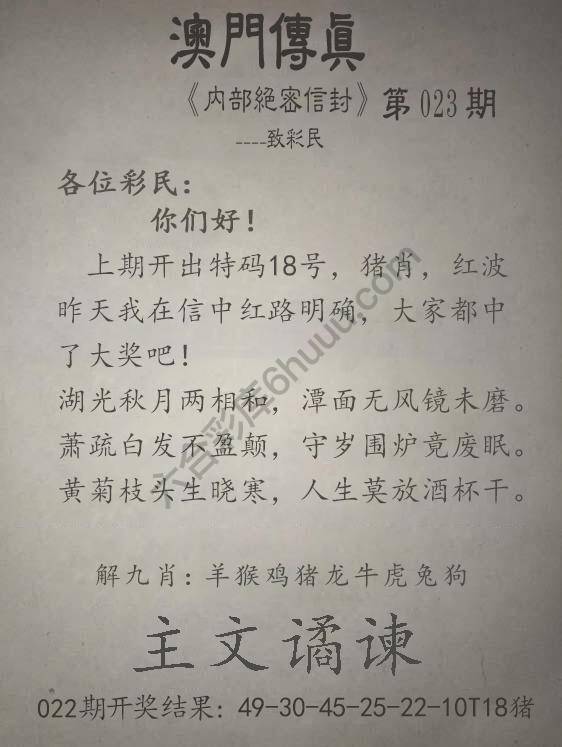 澳門傳真
《内部絕密信封》第023期
----致彩民
各位彩民:
你们好!
上期开出特码18号，猪肖，红波
昨天我在信中红路明确，大家都中
了大奖吧!
湖光秋月两相和，潭面无风镜未磨。
萧疏白发不盈颠，守岁围炉竟废眠。
黄菊枝头生晓寒，人生莫放酒杯干。
六合彩库6huuu.com
解九肖:羊猴鸡猪龙牛虎兔狗
主文谲谏
022期开奖结果: 49-30-45-25-22-10T18猪